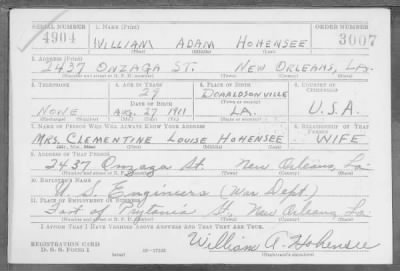 SERIAL NUMBER 1. NAME (Print) ORDER NUMBER
4904 WILLIAM ADAM HOHENSEE 3007
(First) (Middle) (Last)
2. ADDRESS (Print)
2437 ONZAGA ST. NEW ORLEANS, LA.
(Number and street or R. F. D. number) (Town) (County) (State)
3. TELEPHONE 4. AGE IN YEARS 5. PLACE OF BIRTH 6. COUNTRY OF CITIZENSHIP
29 DONALDSONVILLE
DATE OF BIRTH
NONE AUG. 27 1911 LA. U.S.A.
7. NAME OF PERSON WHO WILL ALWAYS KNOW YOUR ADDRESS 8. RELATIONSHIP OF THAT PERSON
MRS. CLEMENTINE LOUISE HOHENSEE WIFE
(Mr., Mrs., Miss) (First) (Middle) (Last)
9. ADDRESS OF THAT PERSON
2437 Onzaga St. New Orleans, La.
(Number and street or R. F. D. number) (Town) (County) (State)
10. EMPLOYER'S NAME
U. S. Engineers (War Dept.)
11. PLACE OF EMPLOYMENT OR BUSINESS
Foot of Prytania St. New Orleans La
(Number and street or R. F. D. number) (Town) (County) (State)
I AFFIRM THAT I HAVE VERIFIED ABOVE ANSWERS AND THAT THEY ARE TRUE.
REGISTRATION CARD
D. S. S. FORM 1
(over)
William A. Hohensee
(Registrant's signature)